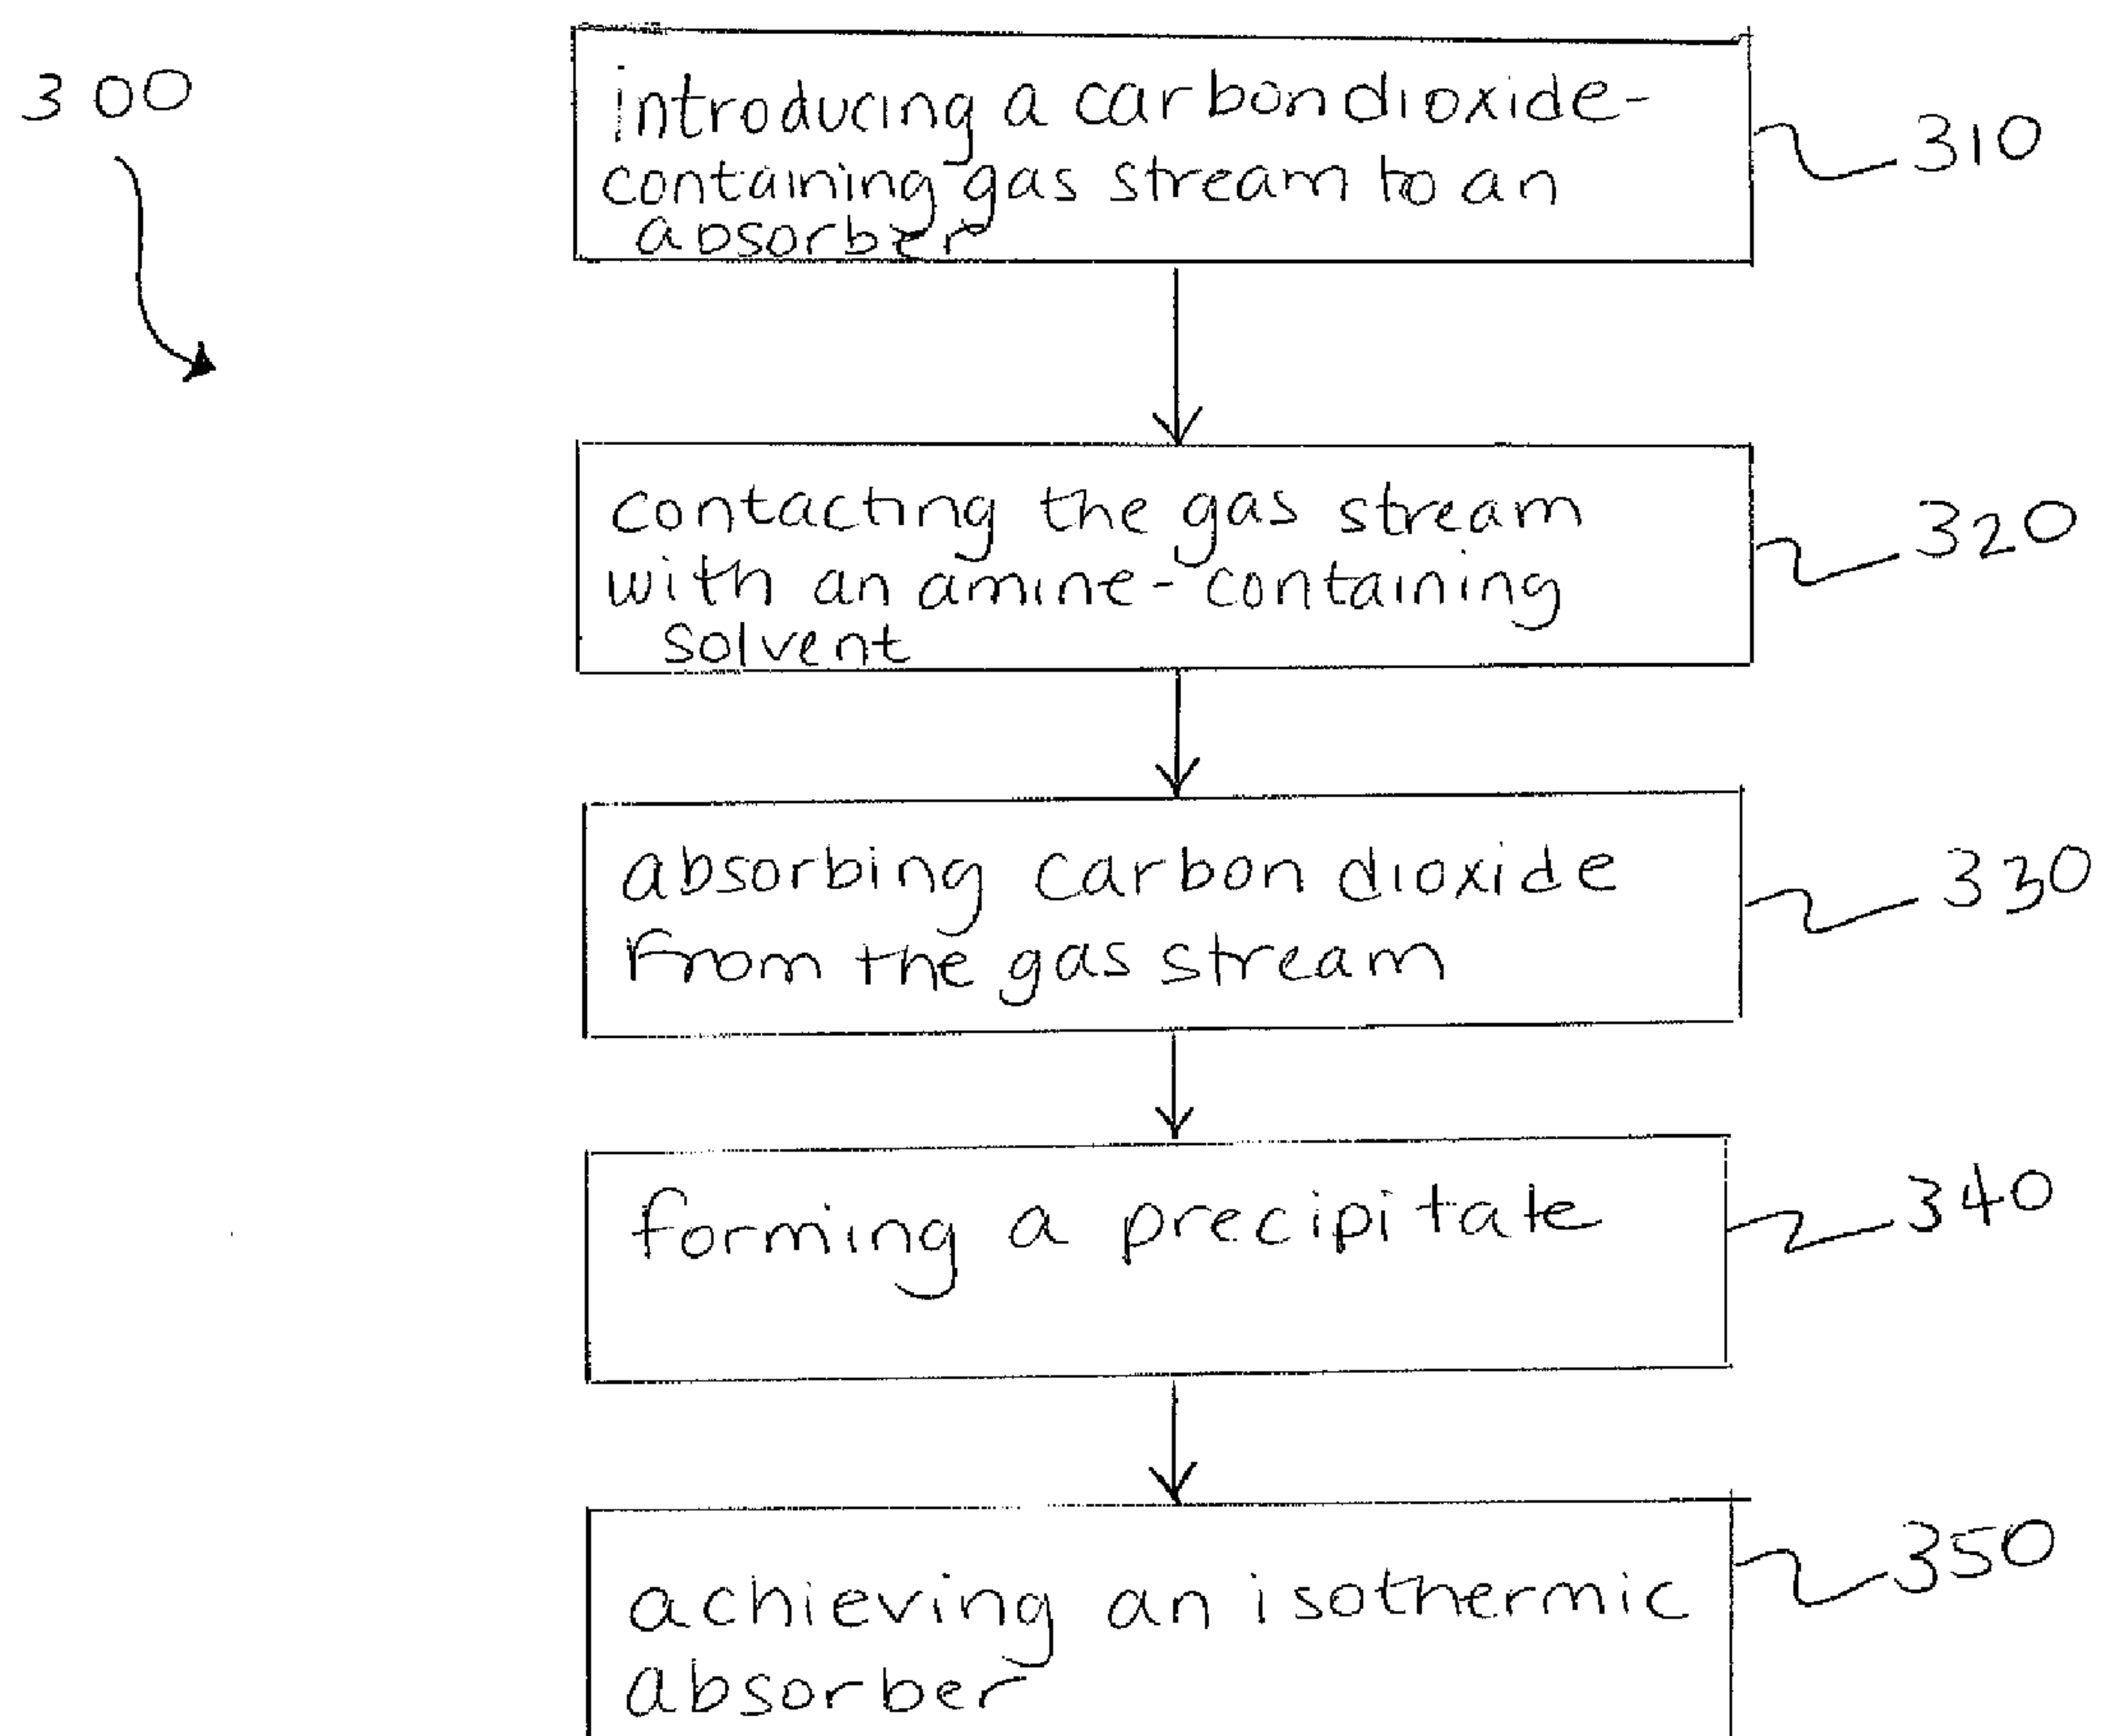 300
introducing a carbon dioxide-
containing gas stream to an
absorber
310
contacting the gas stream
with an amine-containing
solvent
320
absorbing carbon dioxide
from the gas stream
330
forming a precipitate
340
achieving an isothermic
absorber
350